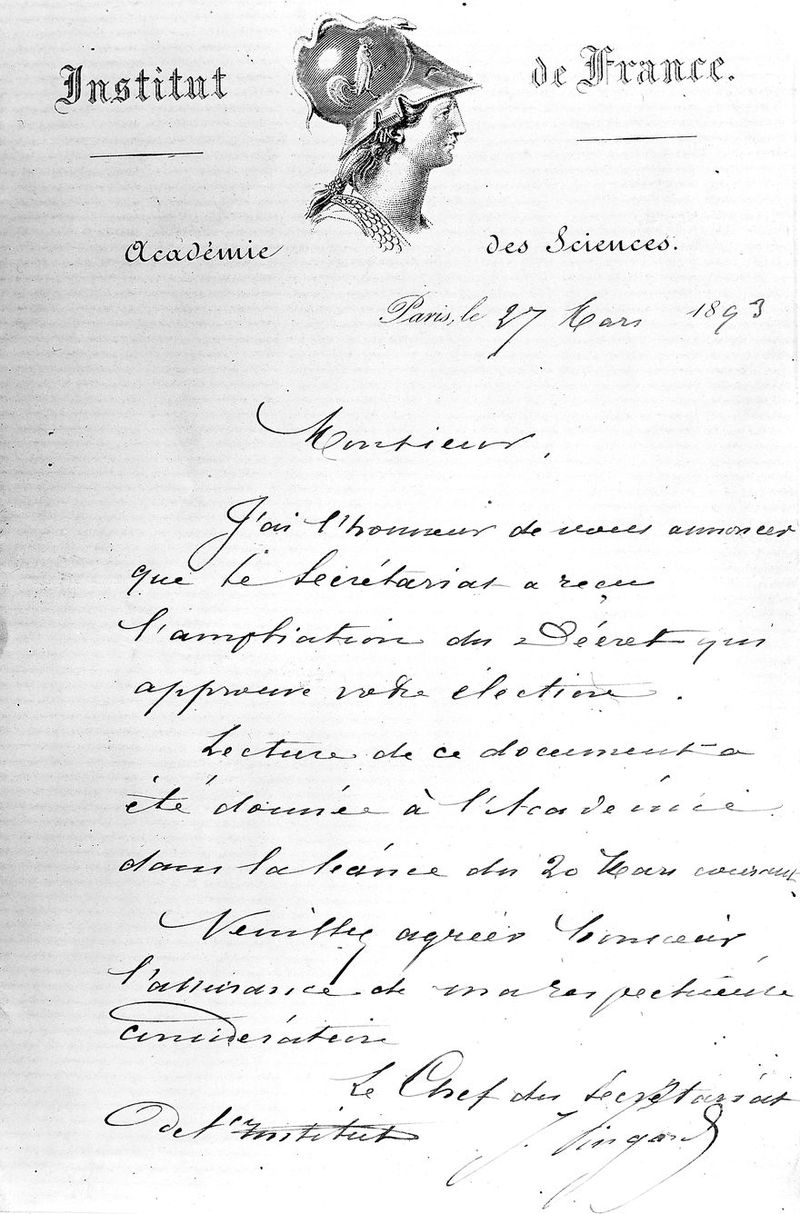 Institut de France.
Académie des Sciences.
Paris, le 27 Mars 1893
Monsieur,
J'ai l'honneur de vous annoncer
que le Secrétariat a reçu
l'ampliation du Décret qui
approuve votre élection.
Lecture de ce document a
été donnée à l'Académie
dans la séance du 20 Mars courant.
Veuillez agréer Monsieur
l'assurance de ma respectueuse
considération
Le Chef du Secrétariat
de l'Institut
J. Pingard